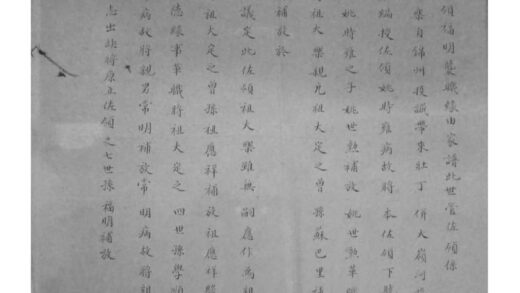 領福明襲職緣由家譜此世管佐領係
樂自錦州投誠帶來壯丁 併大嶺河
編授佐領姚時雍病故將 本佐領下
姚時雍之子姚世勲補放 姚世勲革
祖大樂親兄祖大定之曾 孫蘇巴里
補放於
議定此佐領祖大樂雖無 嗣應作為祖
祖大定之曾孫祖應祥補放祖應祥
緣事革職將祖大定之 四世孫學
病故將親男常明補放常 明病故將祖
志出缺將原立佐領之七世孫 福明補放